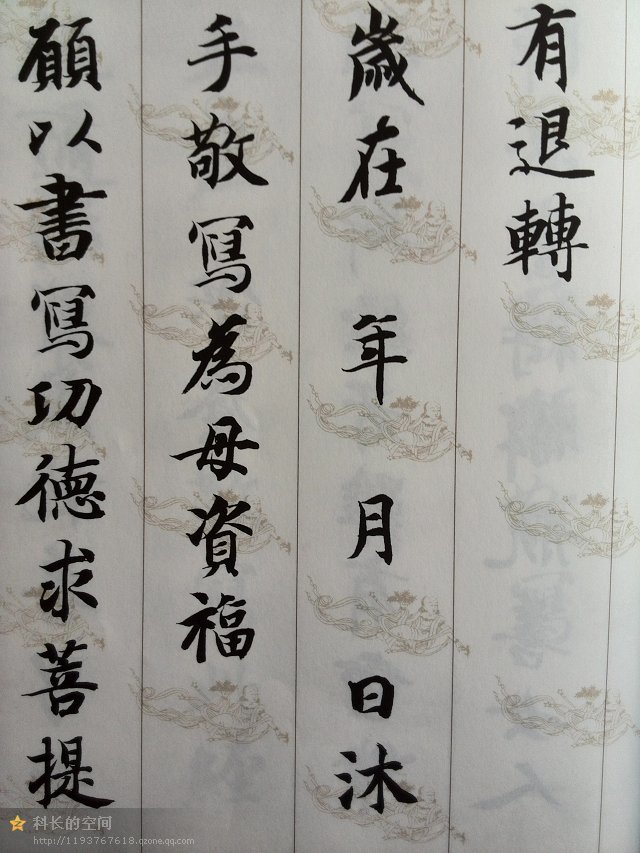 有退轉
歲在 年 月 日沐
手敬寫為母資福
願以書寫功德求菩提
科长的空间
http://1193767618.qzone.qq.com